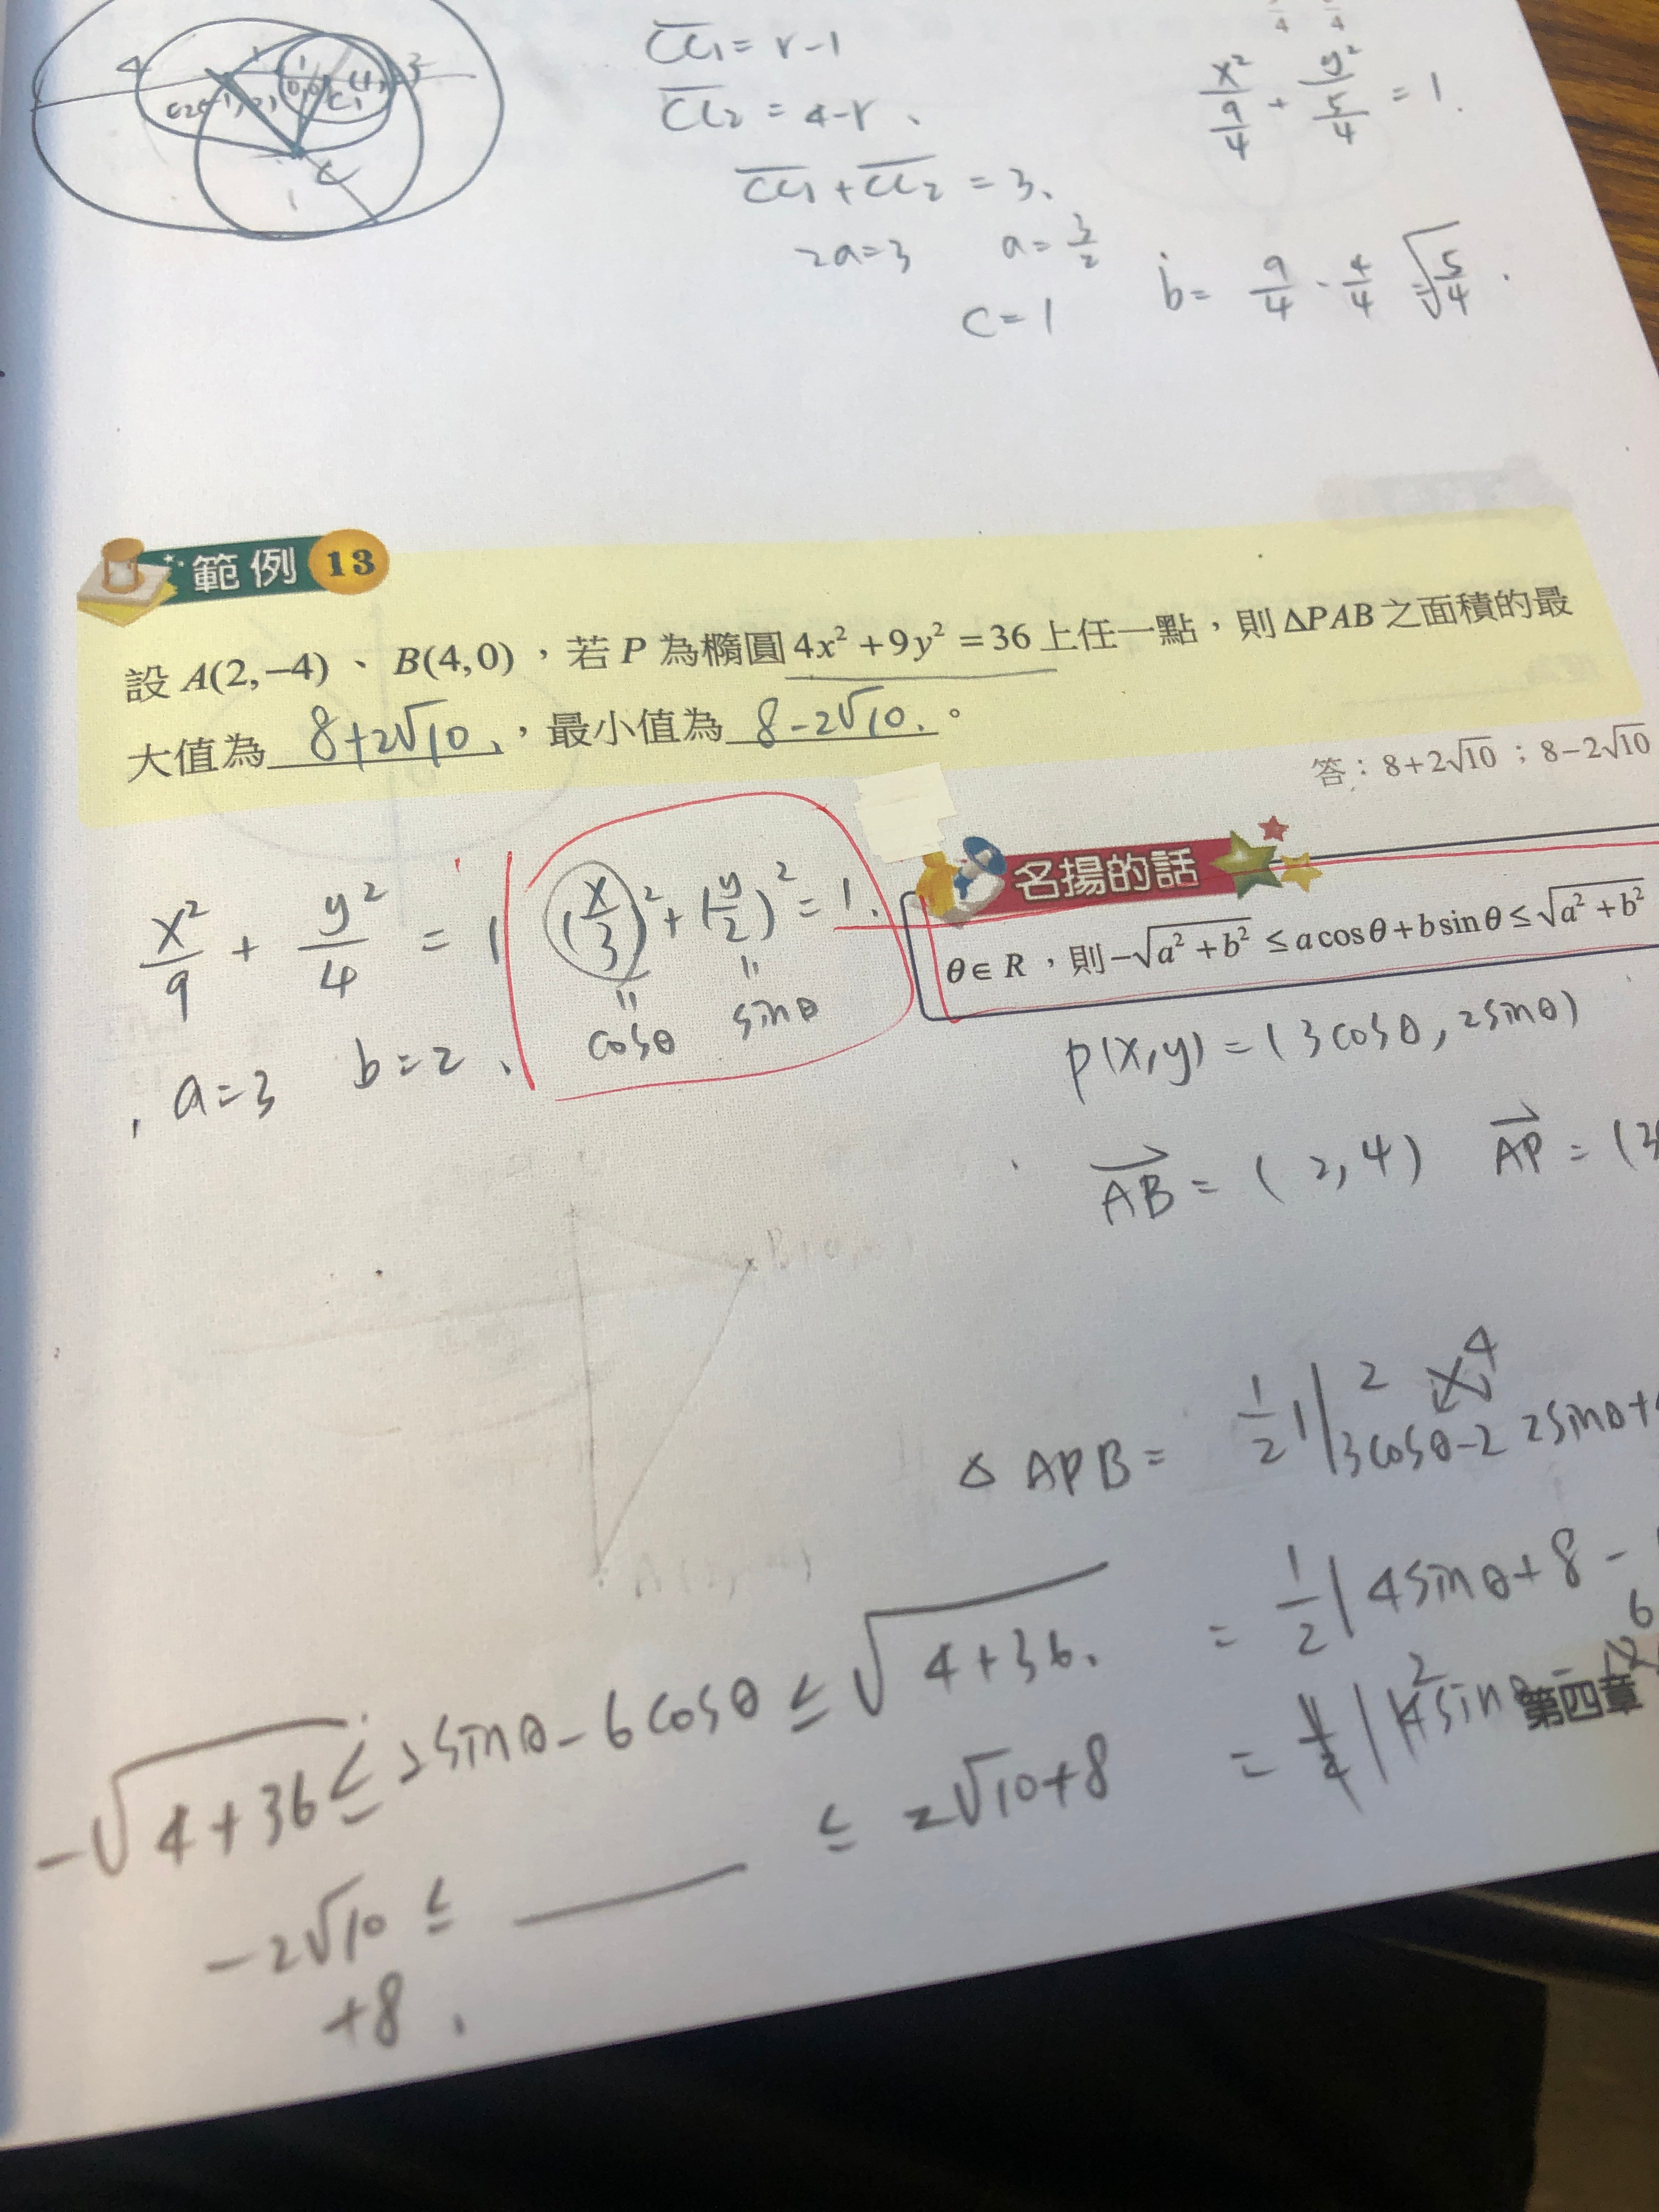 CC₁ = r-1
CC₂ = 4-r
CC₁ + CC₂ = 3.
2a=3 a= 3/2
c=1
x²/(9/4) + y²/(5/4) = 1.
b= 9/4 - 4/4 = √(5/4) .
4
3
C
範例 13
設 A(2,−4)、B(4,0),若 P 為橢圓 4x² + 9y² = 36 上任一點,則 ΔPAB 之面積的最
大值為 8+2√10 ,最小值為 8-2√10. 。
答:8+2√10;8−2√10
名揚的話
θ∈R,則 −√(a²+b²) ≤ a cosθ + b sinθ ≤ √(a²+b²)
x²/9 + y²/4 = 1
(x/3)² + (y/2)² = 1.
cosθ sinθ
a=3 b=2
P(x,y) = (3cosθ, 2sinθ)
AB = (2,4) AP = (3
Δ APB = 1/2 || 2 4
3cosθ-2 2sinθ+
= 1/2 | 4sinθ+8 -
-√(4+36) ≤ 2sinθ-6cosθ ≤ √(4+36).
-2√10 ≤ ___ ≤ 2√10+8
+8
第四章